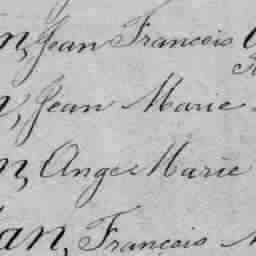 n, Jean François
n, Jean Marie
n, Ange Marie
an, François